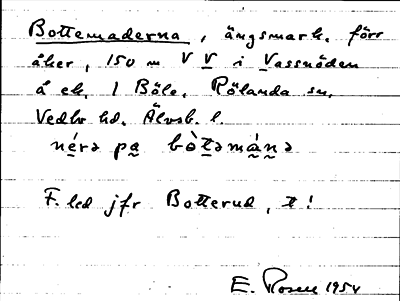 Bottemaderna, ängsmark, förr
åker, 150 m V V i Vassnöden
å ek. 1 Böle. Rölanda sn,
Vedbo hd. Älvsb. l.
nérə pa bòtəmánə
F. led jfr Botterud, t!
E. Rosell 1954